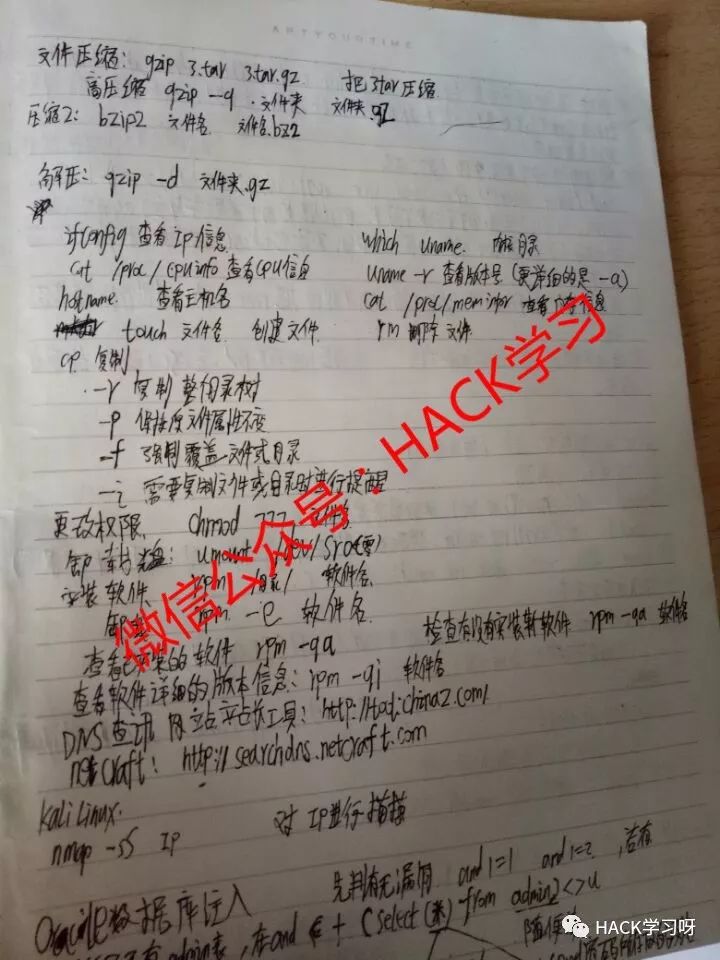 ARTYOURTIME
文件压缩: gzip 3.tar 3tar.gz 把3tar压缩
高压缩 gzip --9 文件夹 文件夹.gz
压缩2: bzip2 文件名 文件名.bz2
解压: gzip -d 文件夹.gz
ifconfig 查看IP信息 which uname. 目录
cat /proc/cpuinfo 查看CPU信息 uname -r 查看版本号 (更详细的是 -a)
hostname. 查看主机名 cat /proc/meminfor 查看内存信息
touch 文件名 创建文件. rm 删除文件
cp 复制
-r 复制 整个目录树
-p 保持原文件属性不变
-f 强制覆盖文件或目录
-i 需要复制文件或目录时进行提醒
更改权限. chmod 777 文件名
卸载光盘: umount /dev/sr0(零)
安装软件 rpm 目录/ 软件名
卸载 rpm -e 软件名
查看已安装的软件 rpm -qa 检查有没有安装软件 rpm -qa 软件名
查看软件详细的版本信息: rpm -qi 软件名
DNS查讯 站长工具: http://tool.chinaz.com/
netcraft: http://searchdns.netcraft.com
kali Linux.
nmap -sS IP 对IP进行扫描
Oracle数据库注入 先判有无漏洞. and 1=1 and 1=2 , 若有
admin表, 在and + (select from admin2<>u
随便
微信公众号: HACK学习
HACK学习呀